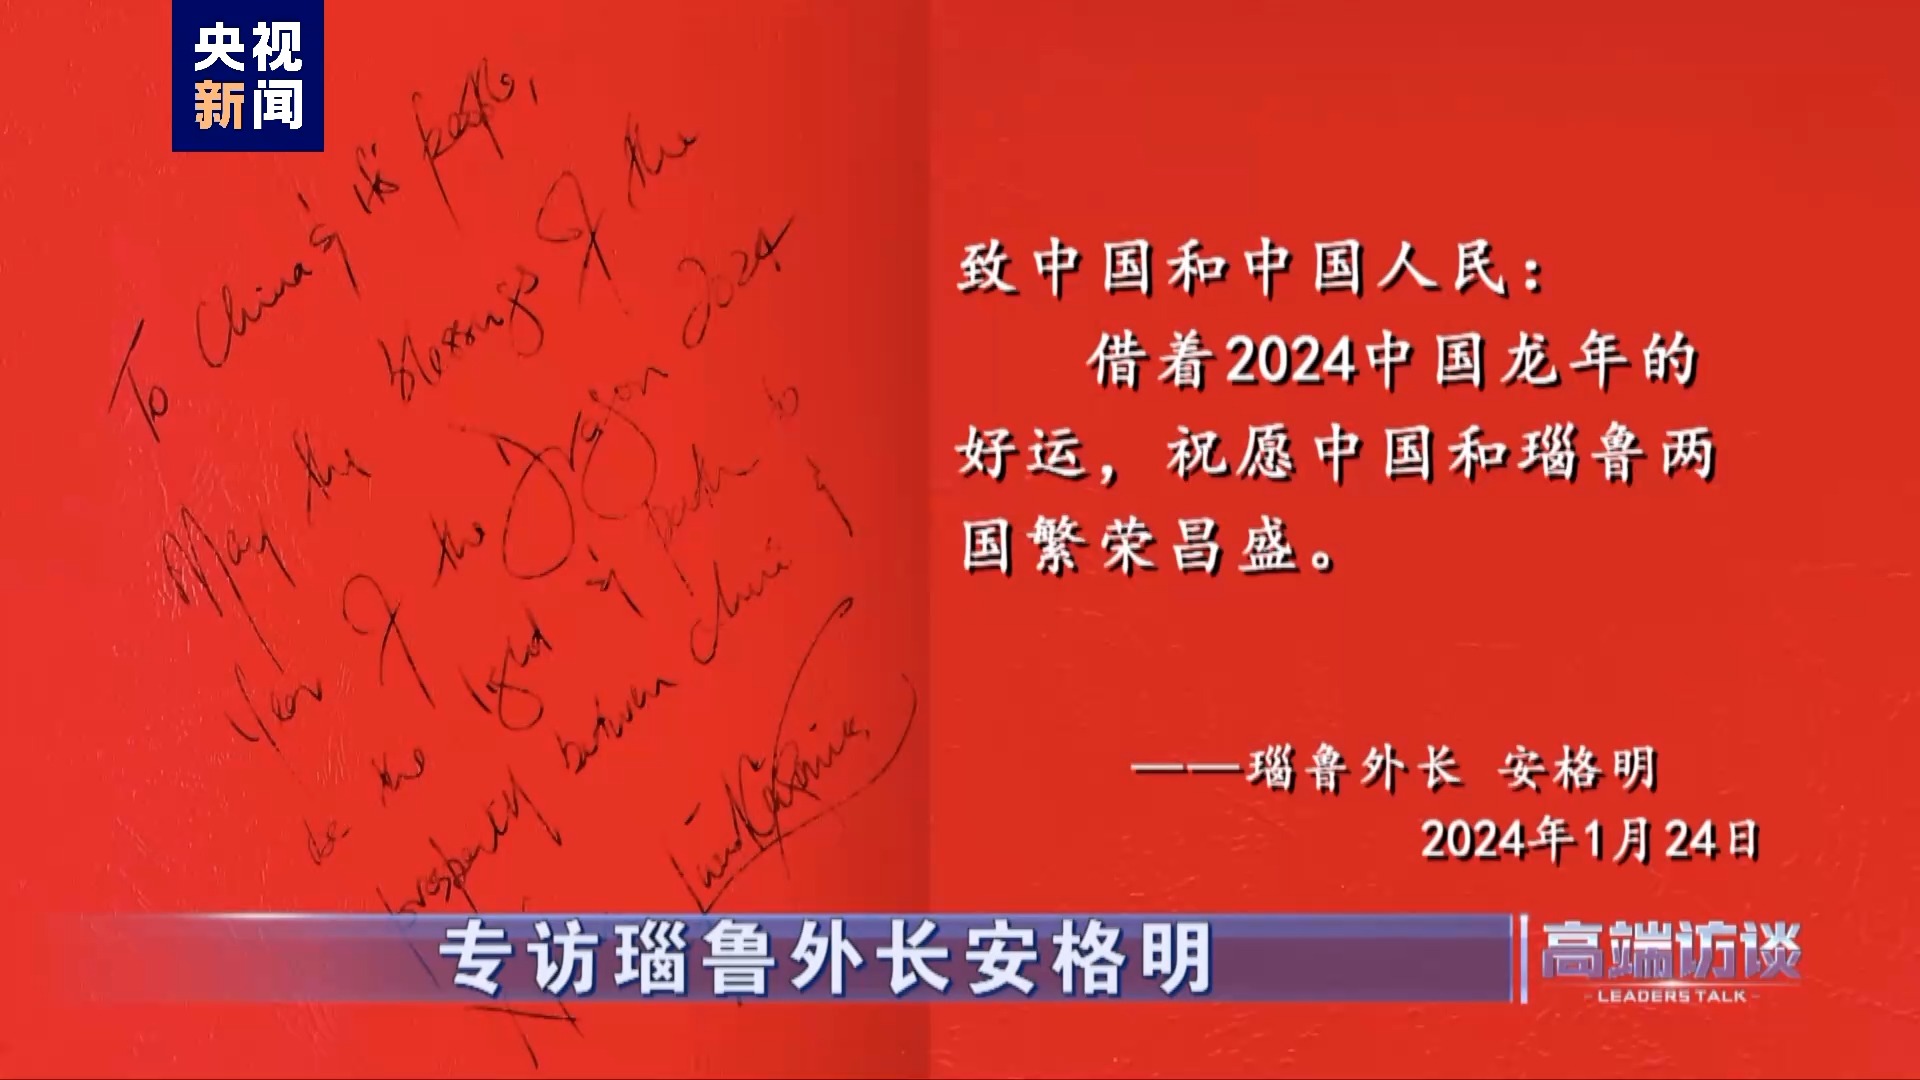 央视
新闻
To China & its people,
May the blessings of the
Year of the Dragon 2024
be the light & path to
prosperity between China &
致中国和中国人民：
借着2024中国龙年的
好运，祝愿中国和瑙鲁两
国繁荣昌盛。
——瑙鲁外长 安格明
2024年1月24日
专访瑙鲁外长安格明
高端访谈
- LEADERS TALK -